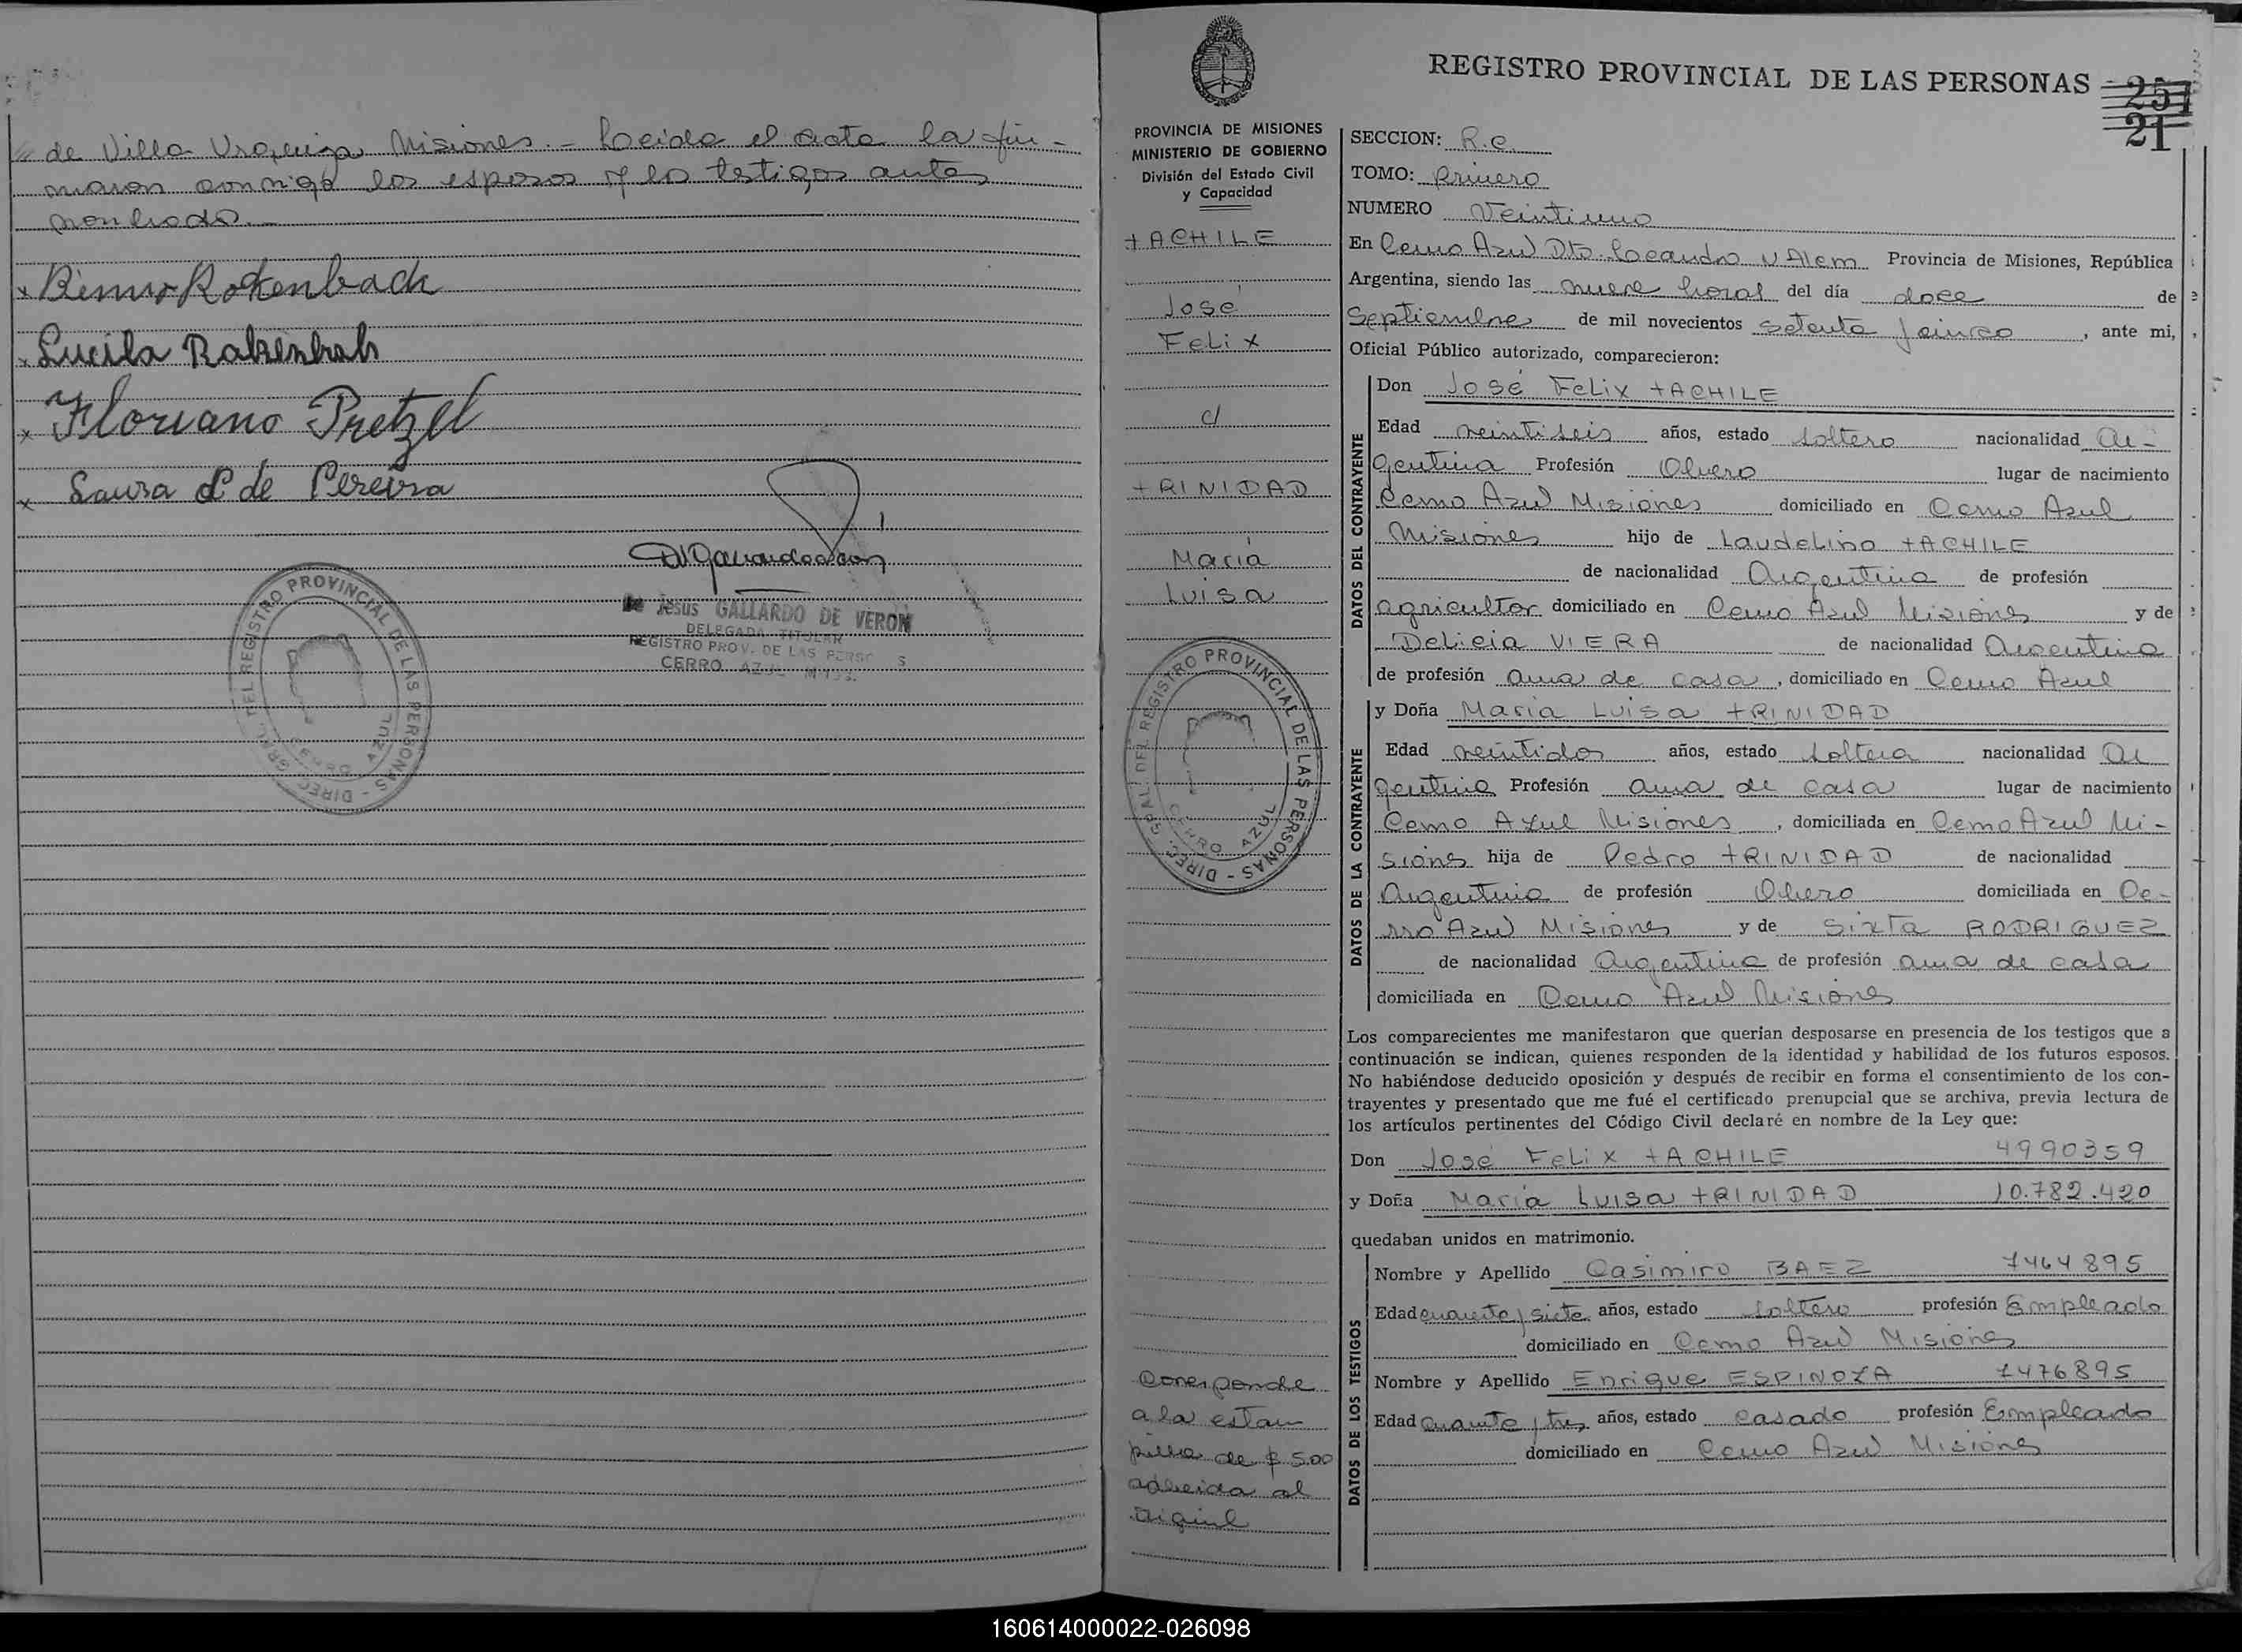 de Villa Urquiza Misiones.- Leida el acta la fir-
maron conmigo los esposos y los testigos antes
nombrado.-
Rokenbach
Lucila Rakenbah
Floriano Pretzel
Laura P de Pereira
Jesús GALLARDO DE VERON
DELEGADA TITULAR
REGISTRO PROV. DE LAS PERSO S
CERRO AZUL MNES.
DIREC. GRAL. DEL REGISTRO PROVINCIAL DE LAS PERSONAS -
CERRO AZUL
REGISTRO PROVINCIAL DE LAS PERSONAS
257
21
PROVINCIA DE MISIONES
MINISTERIO DE GOBIERNO
División del Estado Civil
y Capacidad
TACHILE
José
Felix
c/
TRINIDAD
María
Luisa
DIREC. GRAL. DEL REGISTRO PROVINCIAL DE LAS PERSONAS -
CERRO AZUL
Corresponde
a la estam
pilla de $ 5.00
adherida al
SECCION: R.C.
TOMO: Primero
NUMERO Veintiuno
En Cerro Azul Dto. Leandro N Alem Provincia de Misiones, República
Argentina, siendo las nueve horas del día doce de
Septiembre de mil novecientos setenta y cinco, ante mi,
Oficial Público autorizado, comparecieron:
DATOS DEL CONTRAYENTE
Don José Felix TACHILE
Edad veintiseis años, estado soltero nacionalidad Ar-
gentina Profesión Obrero lugar de nacimiento
Cerro Azul Misiones domiciliado en Cerro Azul
Misiones hijo de Laudelino TACHILE
de nacionalidad Argentina de profesión
agricultor domiciliado en Cerro Azul Misiones y de
Delicia VIERA de nacionalidad Argentina
de profesión ama de casa, domiciliado en Cerro Azul
DATOS DE LA CONTRAYENTE
y Doña Maria Luisa TRINIDAD
Edad veintidos años, estado soltera nacionalidad Ar
gentina Profesión ama de casa lugar de nacimiento
Cerro Azul Misiones, domiciliada en Cerro Azul Mi-
siones hija de Pedro TRINIDAD de nacionalidad
Argentina de profesión Obrero domiciliada en Ce-
rro Azul Misiones y de Sixta RODRIGUEZ
de nacionalidad Argentina de profesión ama de casa
domiciliada en Cerro Azul Misiones
Los comparecientes me manifestaron que querían desposarse en presencia de los testigos que a
continuación se indican, quienes responden de la identidad y habilidad de los futuros esposos.
No habiéndose deducido oposición y después de recibir en forma el consentimiento de los con-
trayentes y presentado que me fué el certificado prenupcial que se archiva, previa lectura de
los artículos pertinentes del Código Civil declaré en nombre de la Ley que:
Don José Felix TACHILE 4990359
y Doña Maria Luisa TRINIDAD 10.782.420
quedaban unidos en matrimonio.
DATOS DE LOS TESTIGOS
Nombre y Apellido Casimiro BAEZ 7464895
Edad cuarenta y siete años, estado soltero profesión Empleado
domiciliado en Cerro Azul Misiones
Nombre y Apellido Enrique ESPINOZA 7476895
Edad cuarenta y tres años, estado casado profesión Empleado
domiciliado en Cerro Azul Misiones
160614000022-026098